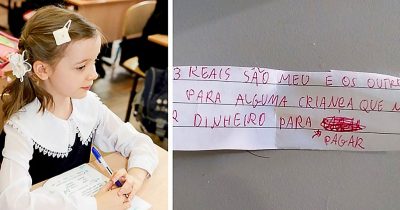 3 REAIS SÃO MEU E OS OUTR
PARA ALGUMA CRIANÇA QUE N
R DINHEIRO PARA
PAGAR